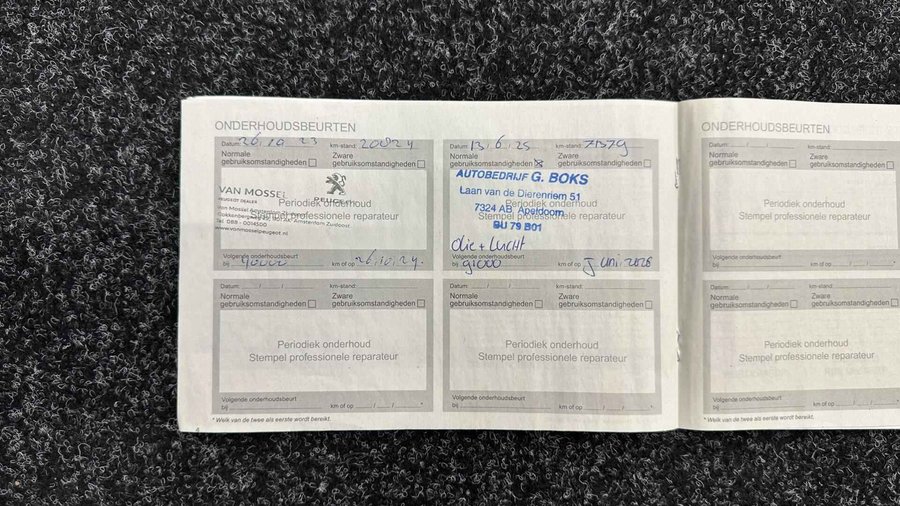 ONDERHOUDSBEURTEN
Datum: 26, 10 23 km-stand: 20824
Normale gebruiksomstandigheden
Zware gebruiksomstandigheden
VAN MOSSEL
PEUGEOT DEALER
PEUGEOT
Periodiek onderhoud
Stempel professionele reparateur
Van Mossel
Amsterdam Zuidoost
Tel. 088 - 0014500
www.vanmosselpeugeot.nl
Volgende onderhoudsbeurt
bij 40000 km of op 26.10.24.
Datum: 13, 6, 25 km-stand:
Normale gebruiksomstandigheden
Zware gebruiksomstandigheden
AUTOBEDRIJF G. BOKS
Laan van de Dierenriem 51
Periodiek onderhoud
7324 AB Apeldoorn
Stempel professionele reparateur
BU 79 B01
olie + Lucht
Volgende onderhoudsbeurt
bij 91000 km of op Juni, 2026
Datum: / / km-stand:
Normale gebruiksomstandigheden
Zware gebruiksomstandigheden
Periodiek onderhoud
Stempel professionele reparateur
Volgende onderhoudsbeurt
bij km of op / / *
Datum: / / km-stand:
Normale gebruiksomstandigheden
Zware gebruiksomstandigheden
Periodiek onderhoud
Stempel professionele reparateur
Volgende onderhoudsbeurt
bij km of op / / *
* Welk van de twee als eerste wordt bereikt.
4
ONDERHOUDSBEURTEN
Datum: / / km-stand:
Normale gebruiksomstandigheden
Zware gebruiksomstandigheden
Periodiek onderhoud
Stempel professionele reparateur
Volgende onderhoudsbeurt
bij km of op / /
Datum: / / km-stand:
Normale gebruiksomstandigheden
Zware gebruiksomstandigheden
Periodiek onderhoud
Stempel professionele reparateur
Volgende onderhoudsbeurt
bij km of op / /
* Welk van de twee als eerste wordt bereikt.